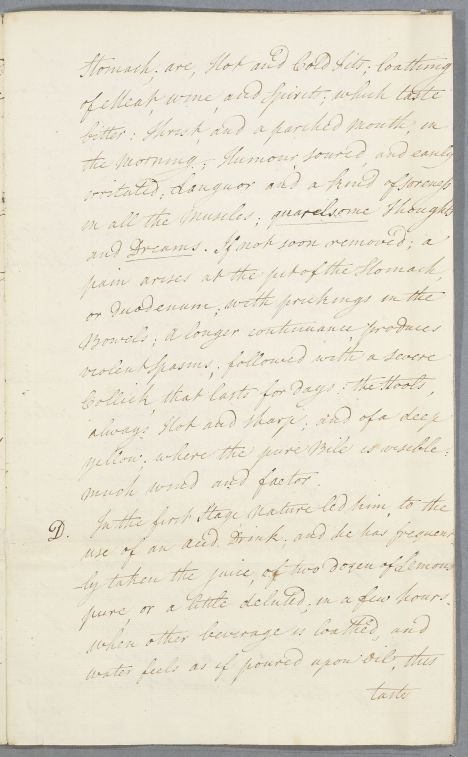 Stomach; are, Hot and Cold fits; loathing
of Meat, wine, and Spirits, which taste
bitter: Thirst, and a parched mouth, in
the Morning; Humour, soured, and easily
irritated; Languor and a kind of soreness
in all the Muscles; quarelsome Thoughts
and Dreams. If not soon removed; a
pain arises at the pit of the Stomach,
or Duodenum, with prickings in the
Bowels; A longer continuance, produces
violent Spasms; followed with a severe
Collick, that lasts for Days: the Stools,
always Hot and sharp; and of a deep
yellow; where the pure Bile is visible:
much wind and fœtor.
D. In the first Stage Nature led him, to the
use of an acid Drink; and he has frequent
ly taken the juice of two Dozen of Lemons
pure, or a little deluted, in a few hours.
when other beverage is loathed, and
water feels as if poured upon Oil, this
taste